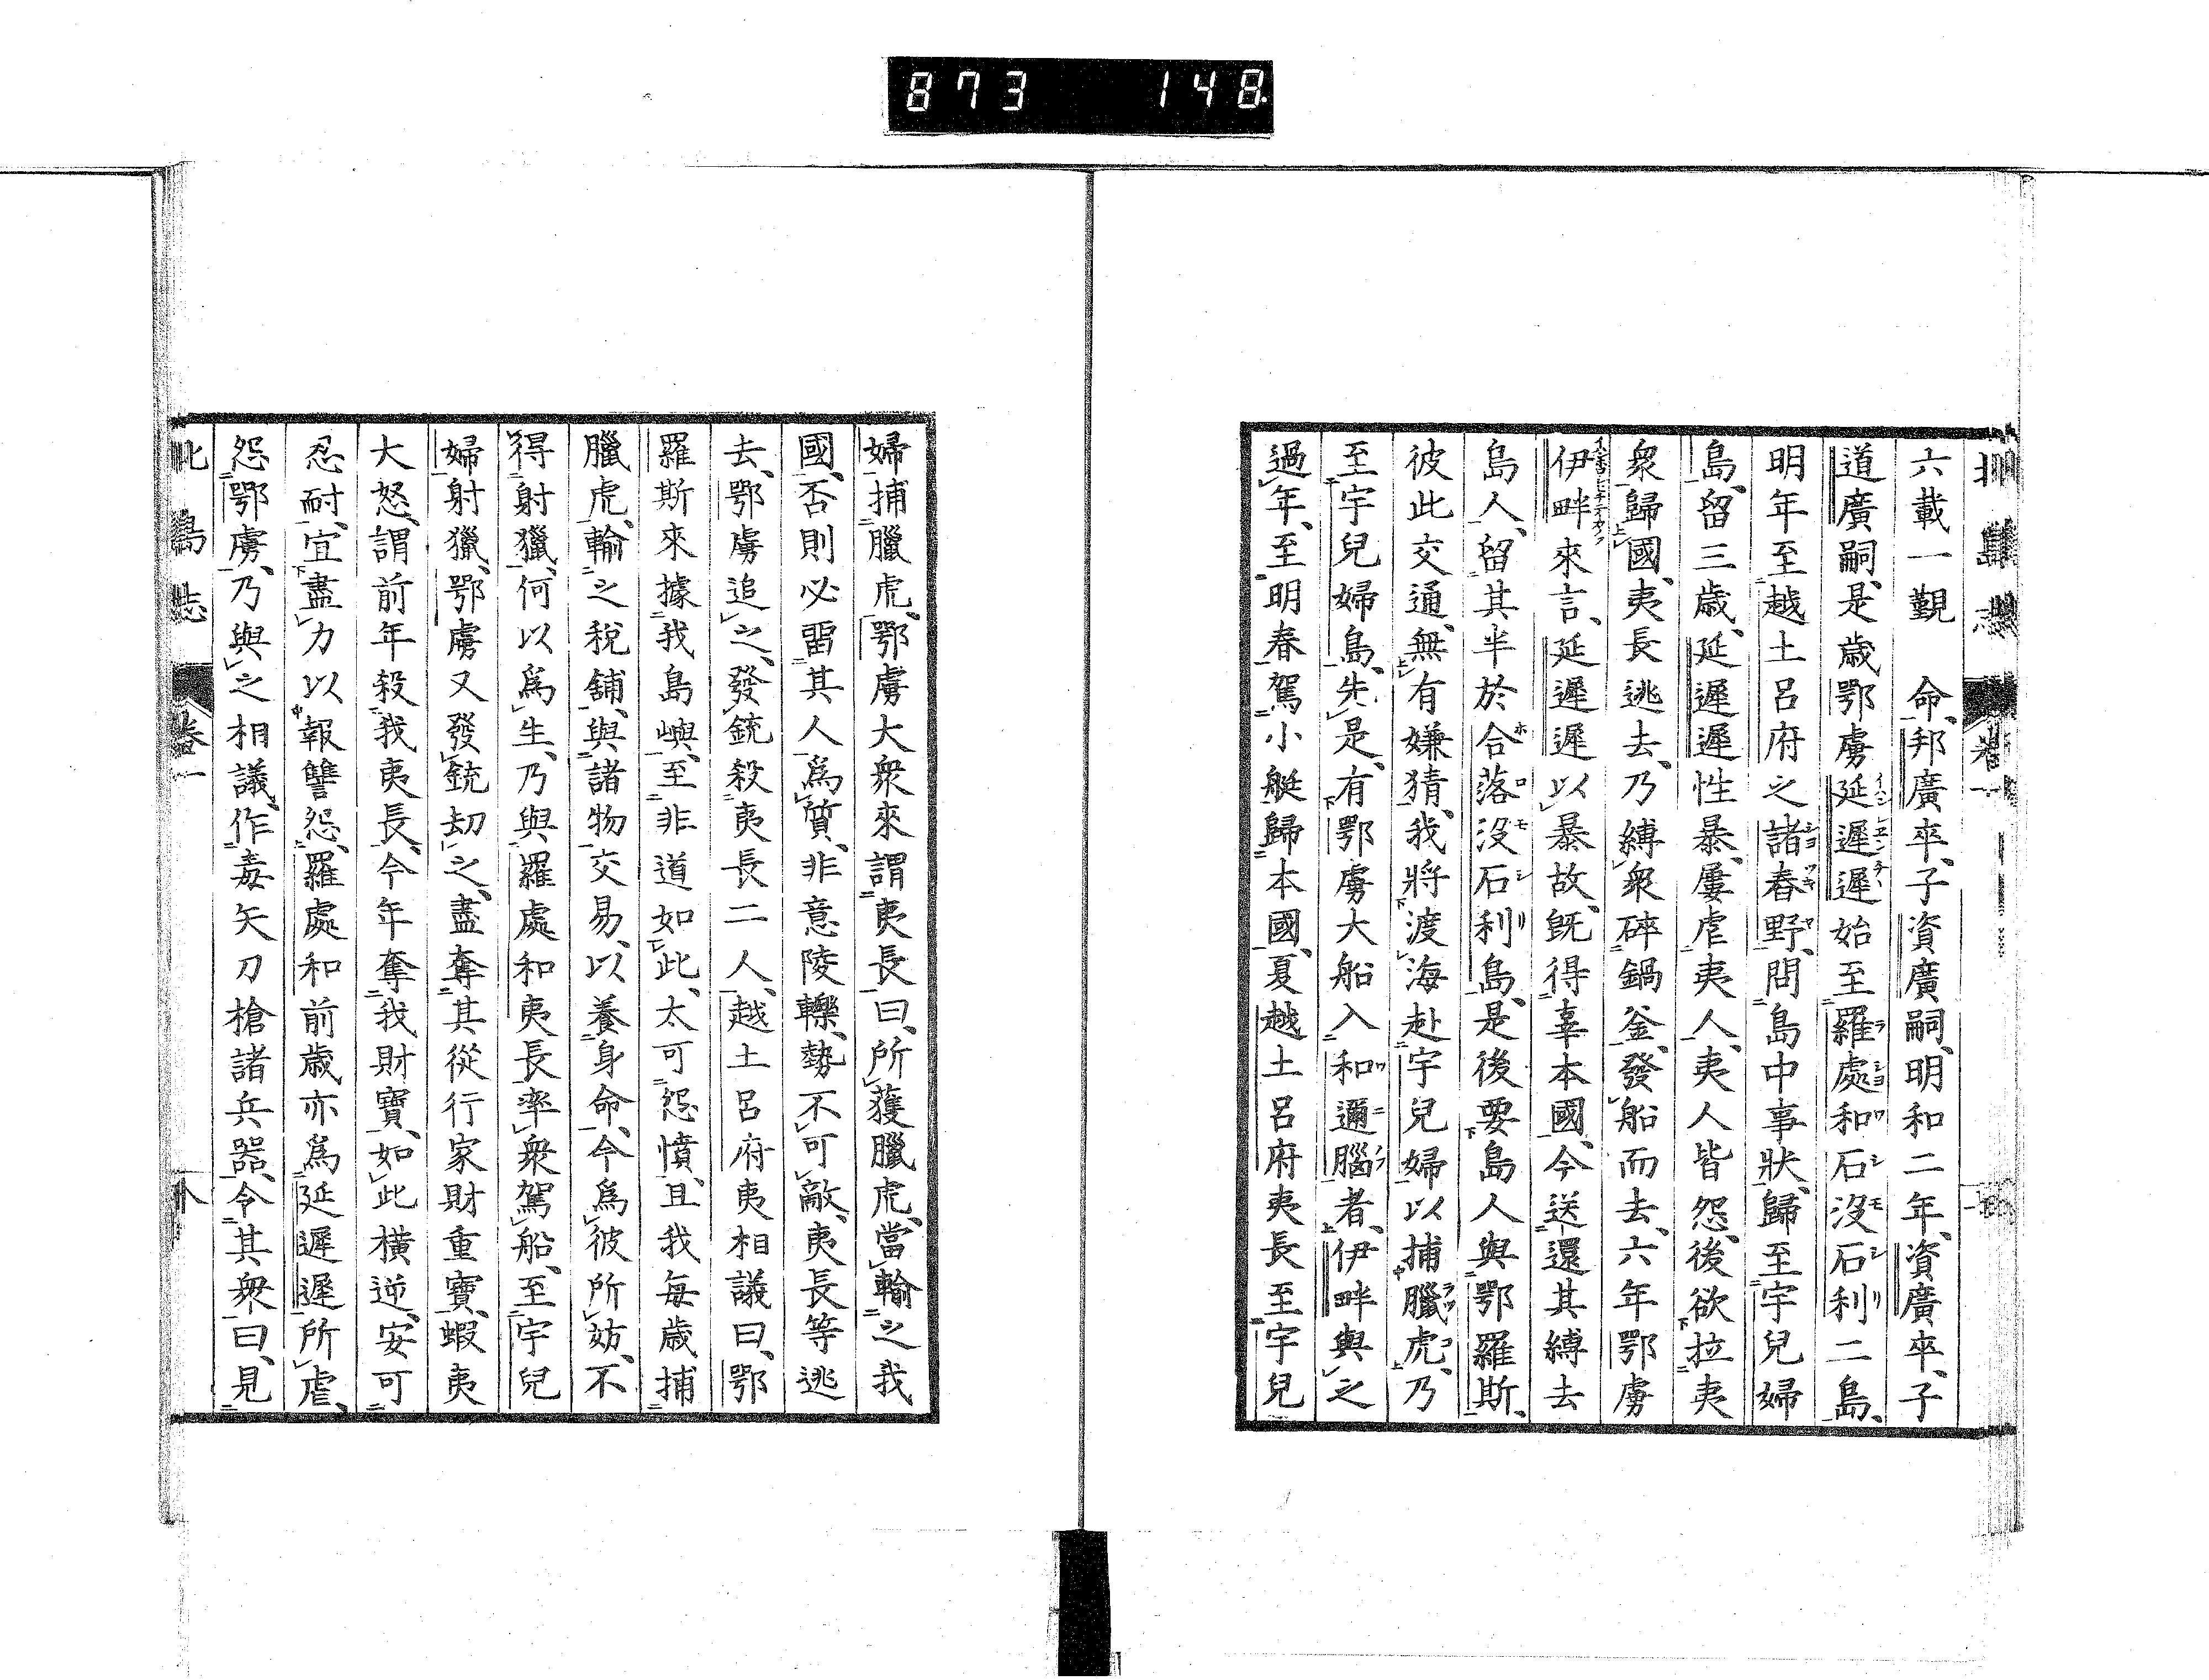 873 148
六載一覲 命、邦廣卒、子資廣嗣、明和二年、資廣卒、子
道廣嗣、是歳鄂虜延遲遲始至羅處和石沒石利二島、
明年至越土呂府之諸舂野、問島中事狀、歸至宇兒婦
島、留三歳、延遲遲性暴、屢虐夷人、夷人皆怨、後欲拉夷
衆歸國、夷長逃去、乃縛衆碎鍋釜、發船而去、六年鄂虜
伊畔來言、延遲遲以暴故、既得辜本國、今送還其縛去
島人、留其半於合落沒石利島、是後要島人與鄂羅斯、
彼此交通、無有嫌猜、我將渡海赴宇兒婦以捕臘虎、乃
至宇兒婦島、先是、有鄂虜大船入和邇腦者、伊畔與之
過年、至明春駕小艇歸本國、夏越土呂府夷長至宇兒
婦捕臘虎、鄂虜大衆來謂夷長曰、所獲臘虎、當輸之我
國、否則必留其人爲質、非意陵轢、勢不可敵、夷長等逃
去、鄂虜追之、發銃殺夷長二人、越土呂府夷相議曰、鄂
羅斯來據我島嶼、至非道如此、太可怨憤、且我每歳捕
臘虎、輸之税舗、與諸物交易、以養身命、今爲彼所妨、不
得射獵、何以爲生、乃與羅處和夷長率衆駕船、至宇兒
婦射獵、鄂虜又發銃劫之、盡奪其從行家財重寶、蝦夷
大怒、謂前年殺我夷長、今年奪我財寶、如此横逆、安可
忍耐、宜盡力以報讐怨、羅處和前歳亦爲延遲遲所虐、
怨鄂虜、乃與之相議、作毒矢刀槍諸兵器、令其衆曰、見
北島志 卷一